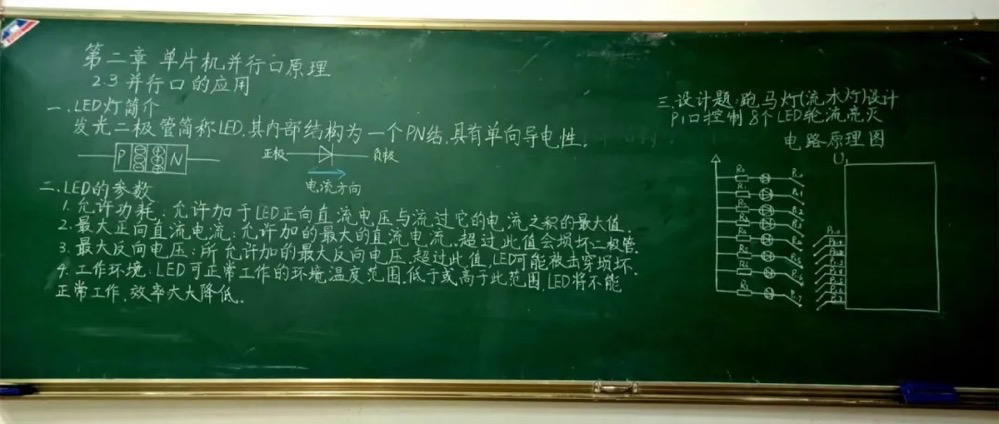 第二章 单片机并行口原理
2.3 并行口的应用
一.LED灯简介
发光二极管简称LED,其内部结构为一个PN结,具有单向导电性。
P N
正极 负极
电流方向
二.LED的参数
1.允许功耗:允许加于LED正向直流电压与流过它的电流之积的最大值.
2.最大正向直流电流:允许加的最大的直流电流.超过此值会损坏二极管.
3.最大反向电压:所允许加的最大反向电压.超过此值,LED可能被击穿损坏.
4.工作环境:LED可正常工作的环境温度范围.低于或高于此范围,LED将不能
正常工作,效率大大降低。
三.设计题:跑马灯(流水灯)设计
P1口控制8个LED轮流亮灭
电路原理图